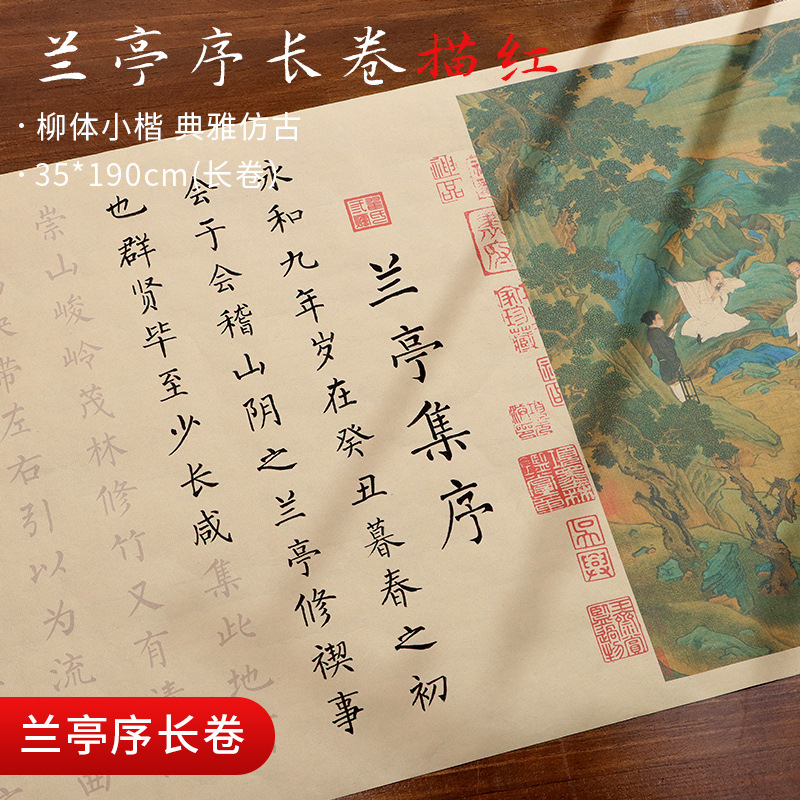 兰亭序长卷描红
·柳体小楷 典雅仿古
·35*190cm(长卷)
神品
兰亭集序
永和九年岁在癸丑暮春之初
会于会稽山阴之兰亭修禊事
也群贤毕至少长咸集此地
崇山峻岭茂林修竹又有清
映带左右引以为流
曲
兰亭序长卷